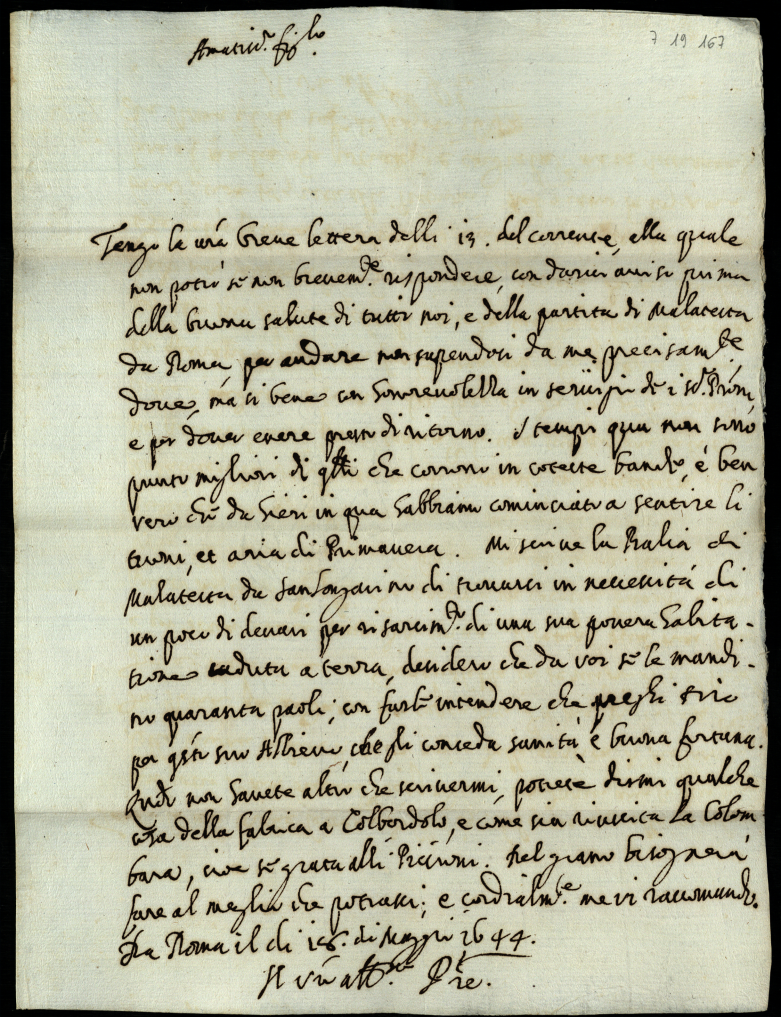 Amatiss.o figlo
7 19 167
Tengo la vr̃a breve lettera delli 13. del corrente, alla quale
non potrò se non brevem.te rispondere, con darvi aviso prima
della buona salute di tutti noi, e della partita di Malatesta
da Roma, per andare non sapendosi da me precisam.te
dove, mà si bene con honorevolezza in servigio de i
e per dover essere presto di ritorno. I tempi qua non sono
punto migliori di q̃lli che corrono in coteste bande, è ben
vero che da hieri in qua habbiamo cominciato a sentire li
tuoni, et aria di Primavera. Mi scrive la Balia di
Malatesta da di trovarsi in necessità di
un poco di denari per risarcim.to di una sua povera habita-
tione caduta a terra, desidero che da voi se le mandi-
no quaranta paoli; con farle intendere che preghi
per q̃sto suo Allievo, che gli conceda sanità e buona fortuna.
Quãdo non havete altro che scrivermi, potrete dirmi qualche
cosa della fabrica a Colbordolo, e come sia riuscita la Colom-
bara, cioè se grata alli Piccioni. Nel grano bisognerà
fare al meglio che potrassi; e cordialm.te me vi raccomando.
Da Roma il di 18. di Maggio 1644.
Il vr̃o aff.mo P̃re.